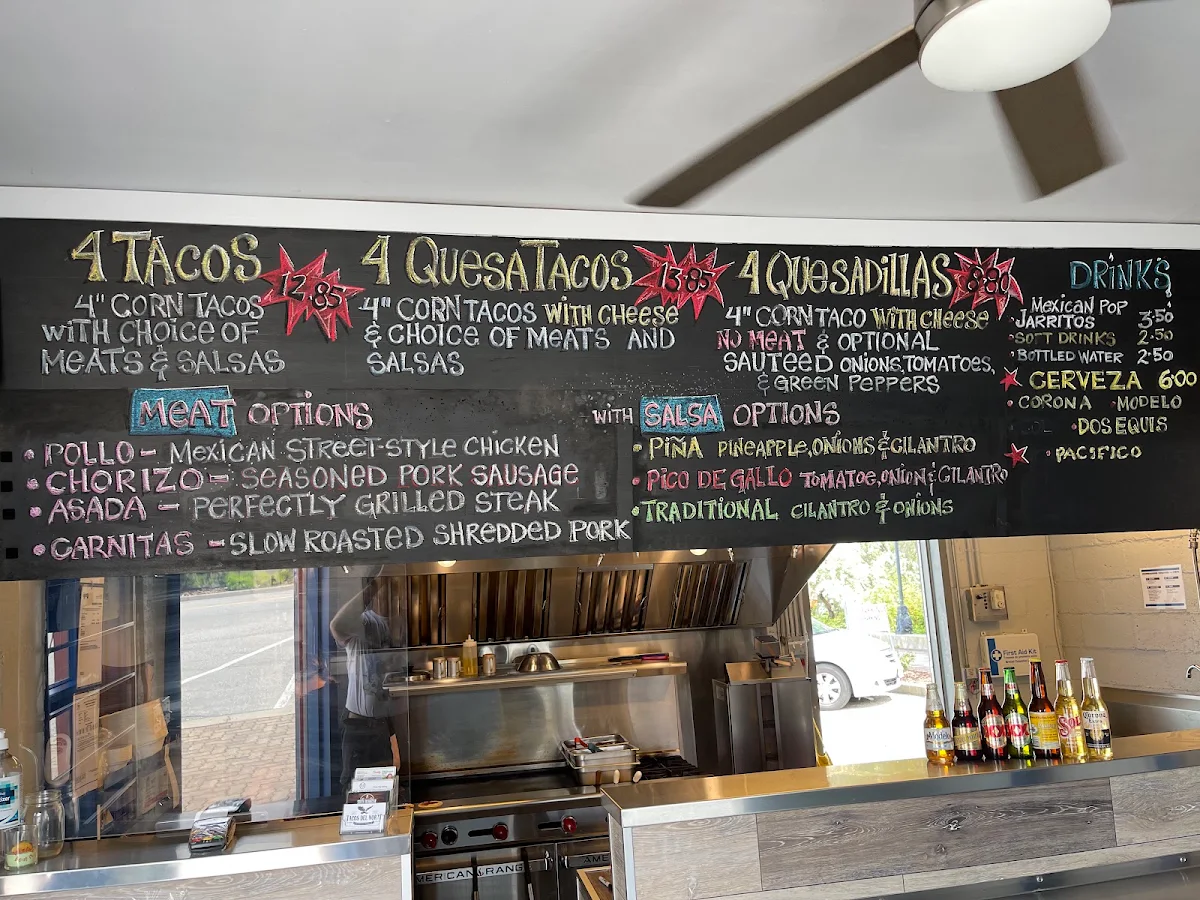 4 TACOS
12.85
4" CORN TACOS
WITH CHOICE OF
MEATS & SALSAS
4 QUESATACOS
13.85
4" CORN TACOS WITH CHEESE
& CHOICE OF MEATS AND
SALSAS
4 QUESADILLAS
8.80
4" CORN TACO WITH CHEESE
NO MEAT & OPTIONAL
SAUTEED ONIONS, TOMATOES,
& GREEN PEPPERS
DRINKS
MEXICAN POP
JARRITOS 3.50
SOFT DRINKS 2.50
BOTTLED WATER 2.50
CERVEZA 6.00
CORONA • MODELO
• DOS EQUIS
• PACIFICO
MEAT OPTIONS
• POLLO - MEXICAN STREET-STYLE CHICKEN
• CHORIZO - SEASONED PORK SAUSAGE
• ASADA - PERFECTLY GRILLED STEAK
• CARNITAS - SLOW ROASTED SHREDDED PORK
WITH SALSA OPTIONS
• PIÑA PINEAPPLE, ONIONS & CILANTRO
• PICO DE GALLO TOMATOE, ONION & CILANTRO
• TRADITIONAL CILANTRO & ONIONS
First Aid Kit
Modelo
XX
Sol
Corona
TACOS DEL NORTE
AMERICAN RANGE
AME